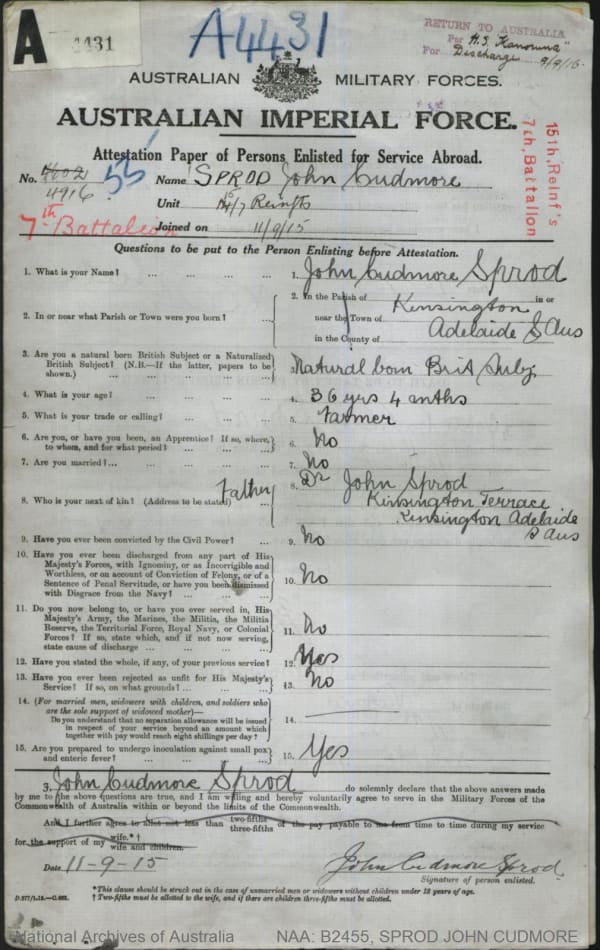 A
4431
A4431
RETURN TO AUSTRALIA
Per H.S. "Kanowna"
For Discharge 8/9/16
AUSTRALIAN MILITARY FORCES.
AUSTRALIAN IMPERIAL FORCE.
Attestation Paper of Persons Enlisted for Service Abroad.
15th. Reinf's
7th. Battalion
No. 4002 55 Name SPROD John Cudmore
4916
Unit 15/7 Reinfts
7th Battalion
Joined on 11/9/15
Questions to be put to the Person Enlisting before Attestation.
1. What is your Name? ... 1. John Cudmore Sprod
2. In or near what Parish or Town were you born? ... 2. In the Parish of Kensington in or
near the Town of Adelaide S Aus
in the County of
3. Are you a natural born British Subject or a Naturalised
British Subject? (N.B.—If the latter, papers to be
shown.) ... 3. Natural born Brit Subj
4. What is your age? ... 4. 36 yrs 4 mths
5. What is your trade or calling? ... 5. Farmer
6. Are you, or have you been, an Apprentice? If so, where,
to whom, and for what period? ... 6. No
7. Are you married? ... 7. No
8. Who is your next of kin? (Address to be stated) Father 8. Dr John Sprod
Kinsington Terrace
Kensington Adelaide
S Aus
9. Have you ever been convicted by the Civil Power? ... 9. No
10. Have you ever been discharged from any part of His
Majesty's Forces, with Ignominy, or as Incorrigible and
Worthless, or on account of Conviction of Felony, or of a
Sentence of Penal Servitude, or have you been dismissed
with Disgrace from the Navy? ... 10. No
11. Do you now belong to, or have you ever served in, His
Majesty's Army, the Marines, the Militia, the Militia
Reserve, the Territorial Force, Royal Navy, or Colonial
Forces? If so, state which, and if not now serving,
state cause of discharge ... 11. No
12. Have you stated the whole, if any, of your previous service? 12. Yes
13. Have you ever been rejected as unfit for His Majesty's
Service? If so, on what grounds? ... 13. No
14. (For married men, widowers with children, and soldiers who
are the sole support of widowed mother)—
Do you understand that no separation allowance will be issued
in respect of your service beyond an amount which
together with pay would reach eight shillings per day? ... 14.
15. Are you prepared to undergo inoculation against small pox
and enteric fever? ... 15. Yes
I, John Cudmore Sprod do solemnly declare that the above answers made
by me to the above questions are true, and I am willing and hereby voluntarily agree to serve in the Military Forces of the
Commonwealth of Australia within or beyond the limits of the Commonwealth.
And I further agree to allot not less than two-fifths three-fifths of the pay payable to me from time to time during my service
for the support of my wife.*† wife and children.
Date 11-9-15 John Cudmore Sprod
Signature of person enlisted.
*This clause should be struck out in the case of unmarried men or widowers without children under 18 years of age.
† Two-fifths must be allotted to the wife, and if there are children three-fifths must be allotted.
National Archives of Australia NAA: B2455, SPROD JOHN CUDMORE